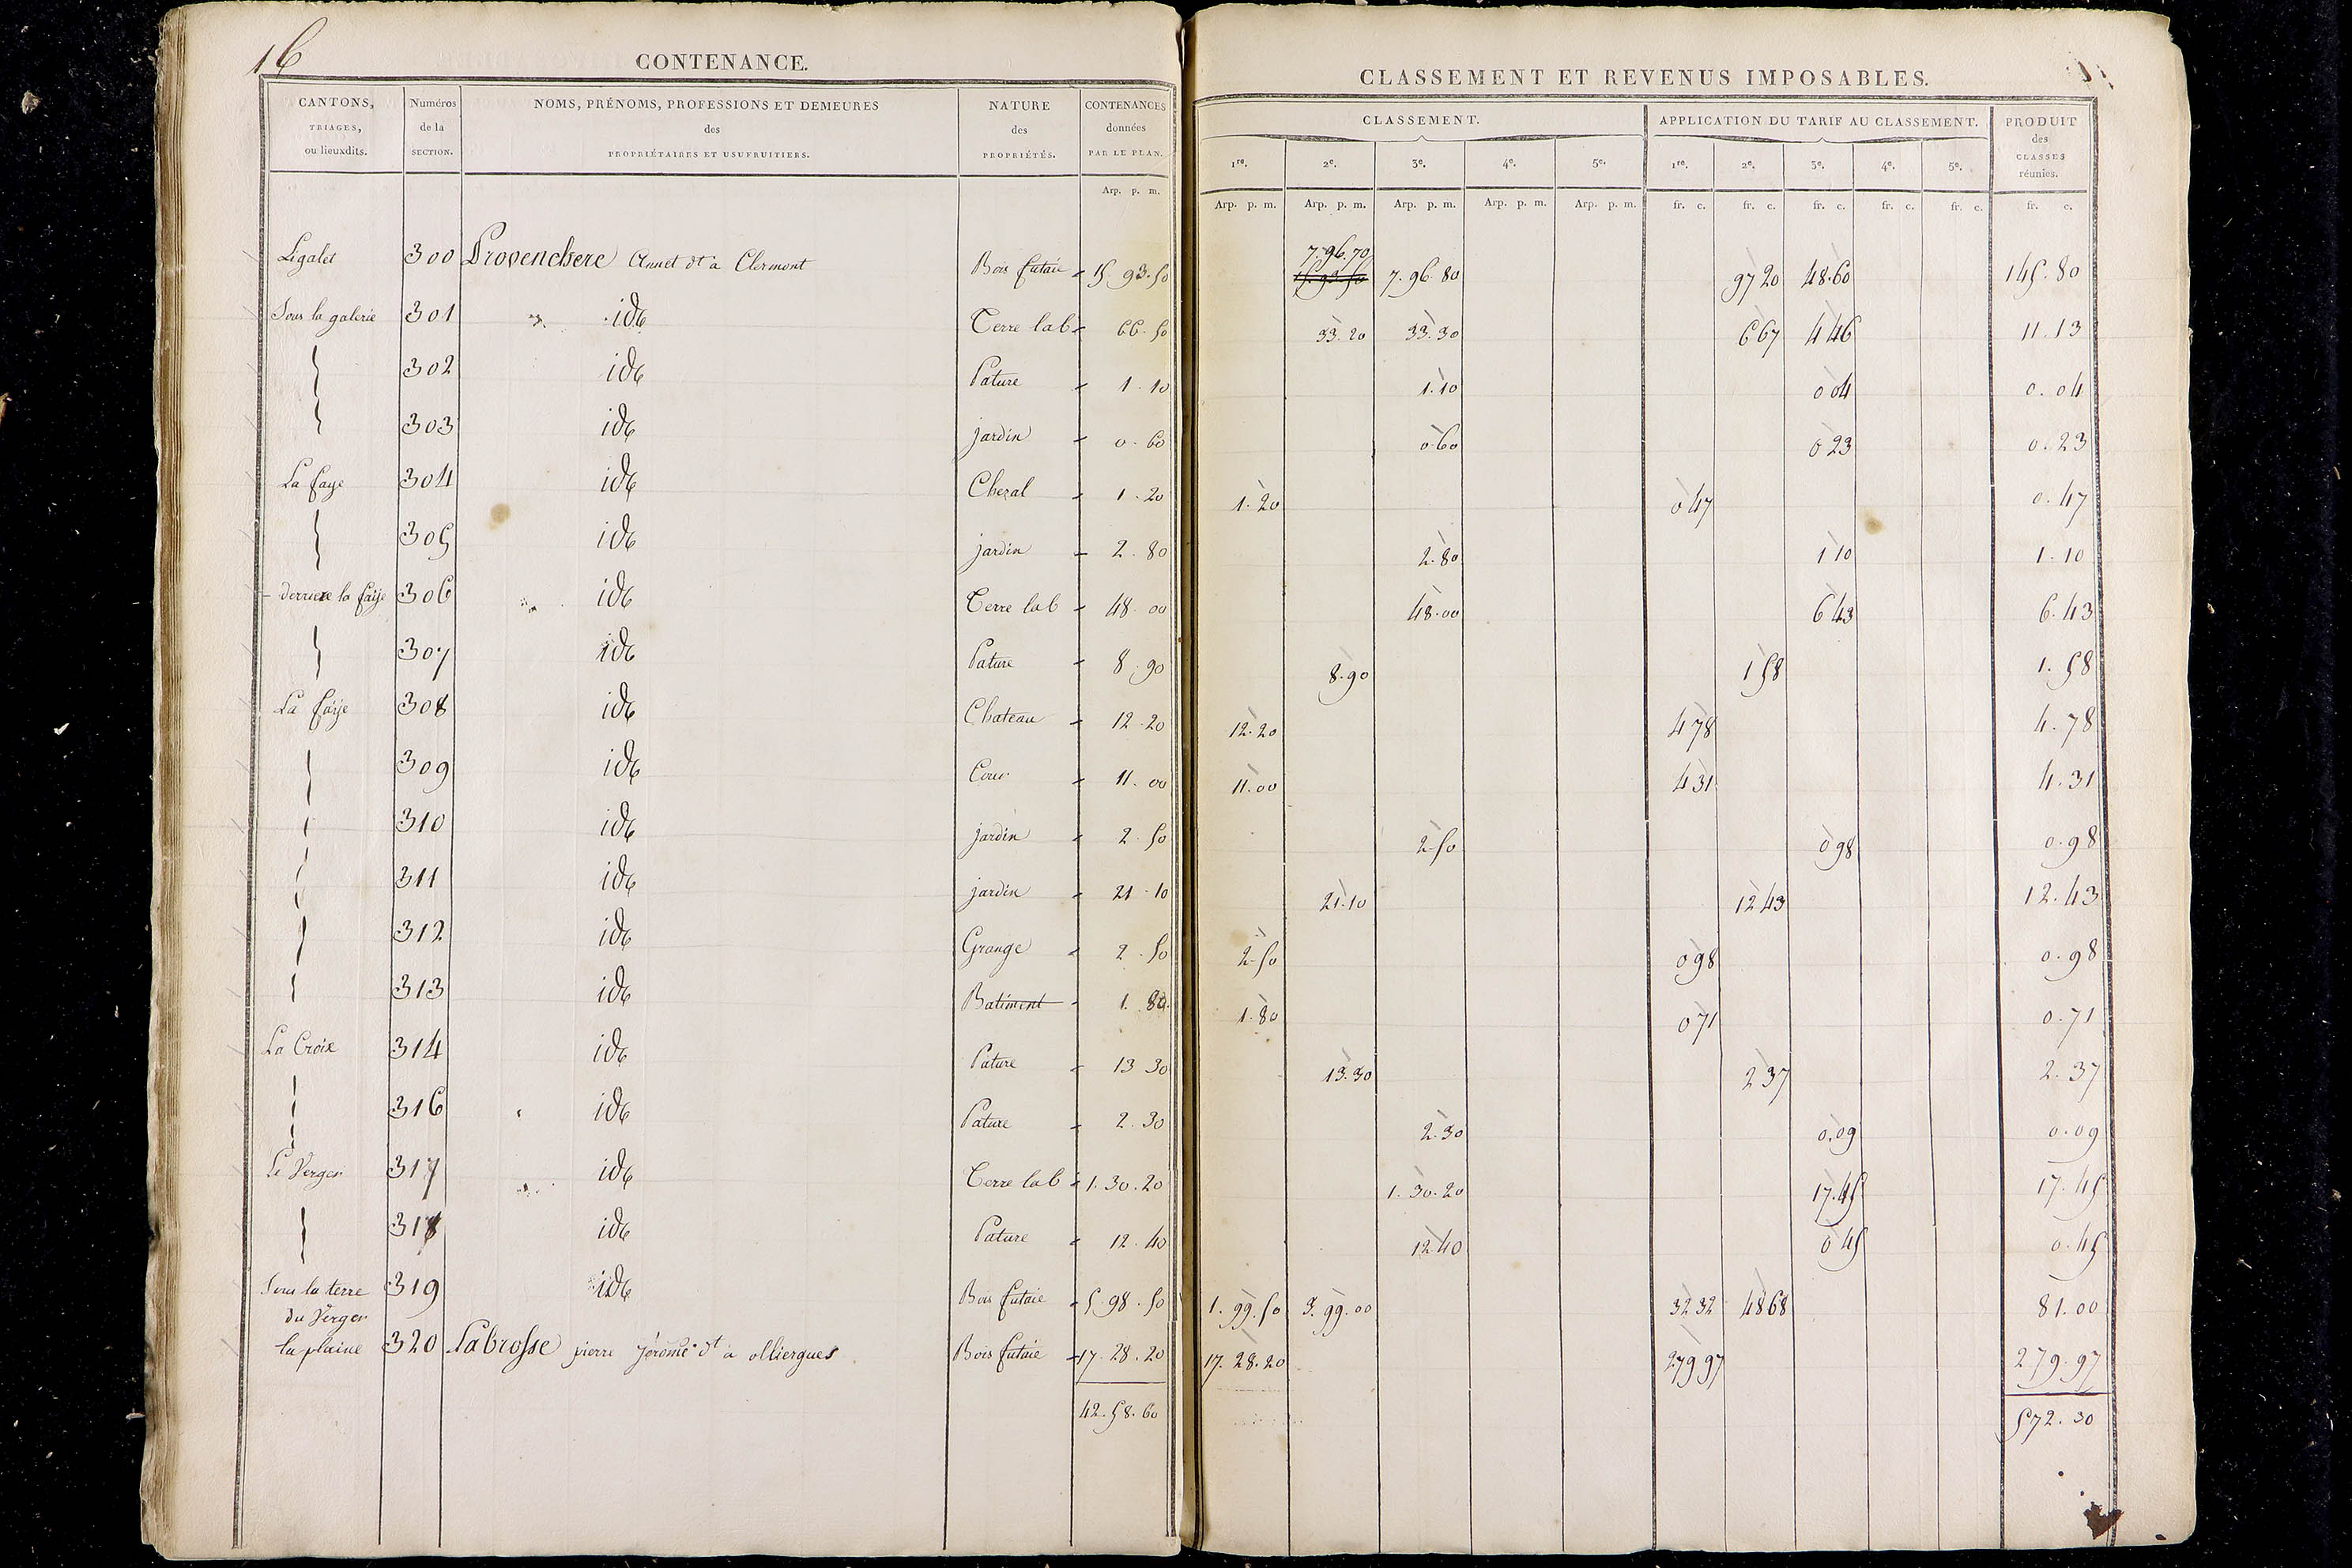 16
CONTENANCE.
CLASSEMENT ET REVENUS IMPOSABLES.
CANTONS, TRIAGES, ou lieuxdits. Numéros de la SECTION. NOMS, PRÉNOMS, PROFESSIONS ET DEMEURES des PROPRIÉTAIRES ET USUFRUITIERS. NATURE des PROPRIÉTÉS. CONTENANCES données PAR LE PLAN. CLASSEMENT. APPLICATION DU TARIF AU CLASSEMENT. PRODUIT des CLASSES réunies.
1re. 2e. 3e. 4e. 5e. 1re. 2e. 3e. 4e. 5e.
Arp. p. m. Arp. p. m. Arp. p. m. Arp. p. m. Arp. p. m. Arp. p. m. fr. c. fr. c. fr. c. fr. c. fr. c. fr. c.
7.96.70
Ligalet 300 Provenchere Annet dt a Clermont Bois futaie 15.93.50 15.93.50 7.96.80 97 20 48.60 145.80
Sous la galerie 301 ide Terre lab 66.50 33.20 33.30 6 67 4 46 11.13
302 ide Pature 1.10 1.10 0 04 0.04
303 ide jardin 0.60 0.60 0 23 0.23
La faye 304 ide Chezal 1.20 1.20 0 47 0.47
305 ide jardin 2.80 2.80 1 10 1.10
derriere la faije 306 ide Terre lab 48.00 48.00 6 43 6.43
307 ide Pature 8.90 8.90 1 58 1.58
La faije 308 ide Chateau 12.20 12.20 4 78 4.78
309 ide Cour 11.00 11.00 4 31 4.31
310 ide jardin 2.50 2.50 0 98 0.98
311 ide jardin 21.10 21.10 12 43 12.43
312 ide Grange 2.50 2.50 0 98 0.98
313 ide Batiment 1.80 1.80 0 71 0.71
La Croix 314 ide Pature 13 30 13.30 2 37 2.37
316 ide Pature 2.30 2.30 0.09 0.09
Le Verger 317 ide Terre lab 1.30.20 1.30.20 17.45 17.45
318 ide Pature 12.40 12 40 0 45 0.45
Sous la terre 319 ide Bois futaie 5.98.50 1.99.50 3.99.00 32 32 48 68 81.00
du Verger
la plaine 320 Labrosse pierre Jérome dt a olliergues Bois futaie 17.28.20 17.28.20 279 97 279.97
42.58.60 572.30